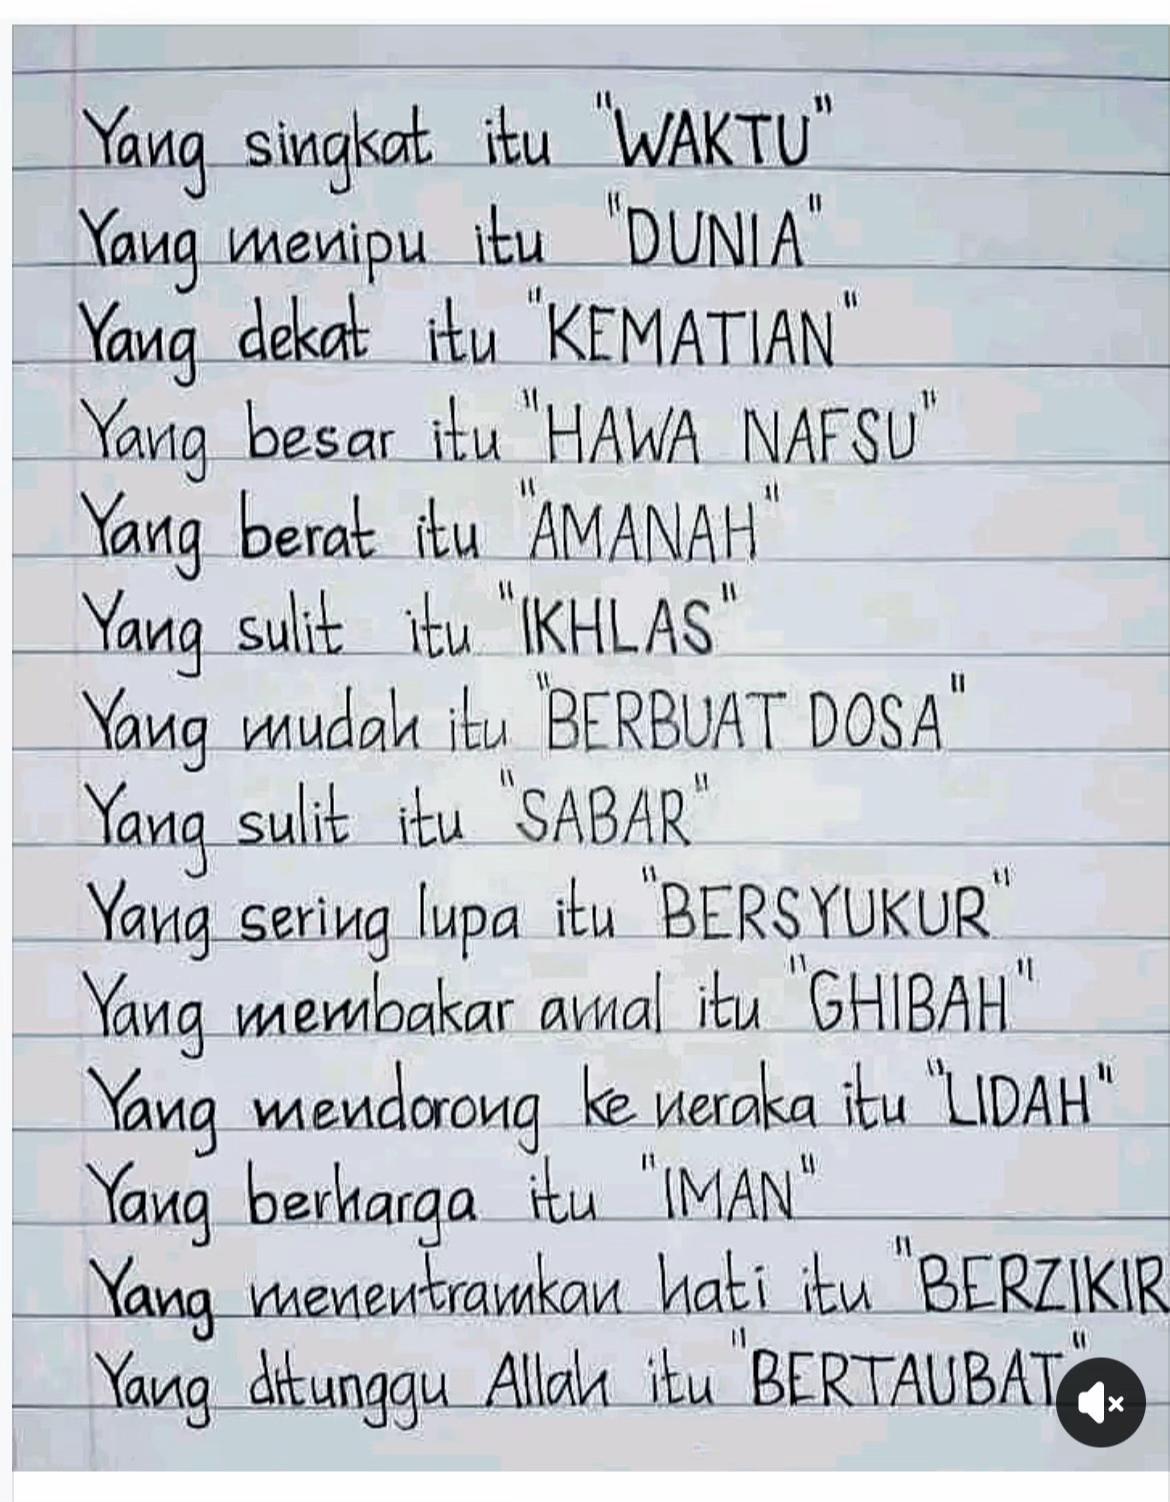 Yang singkat itu "WAKTU"
Yang menipu itu "DUNIA"
Yang dekat itu "KEMATIAN"
Yang besar itu "HAWA NAFSU"
Yang berat itu "AMANAH"
Yang sulit itu "IKHLAS"
Yang mudah itu "BERBUAT DOSA"
Yang sulit itu "SABAR"
Yang sering lupa itu "BERSYUKUR"
Yang membakar amal itu "GHIBAH"
Yang mendorong ke neraka itu "LIDAH"
Yang berharga itu "IMAN"
Yang menentramkan hati itu "BERZIKIR
Yang ditunggu Allah itu "BERTAUBAT"